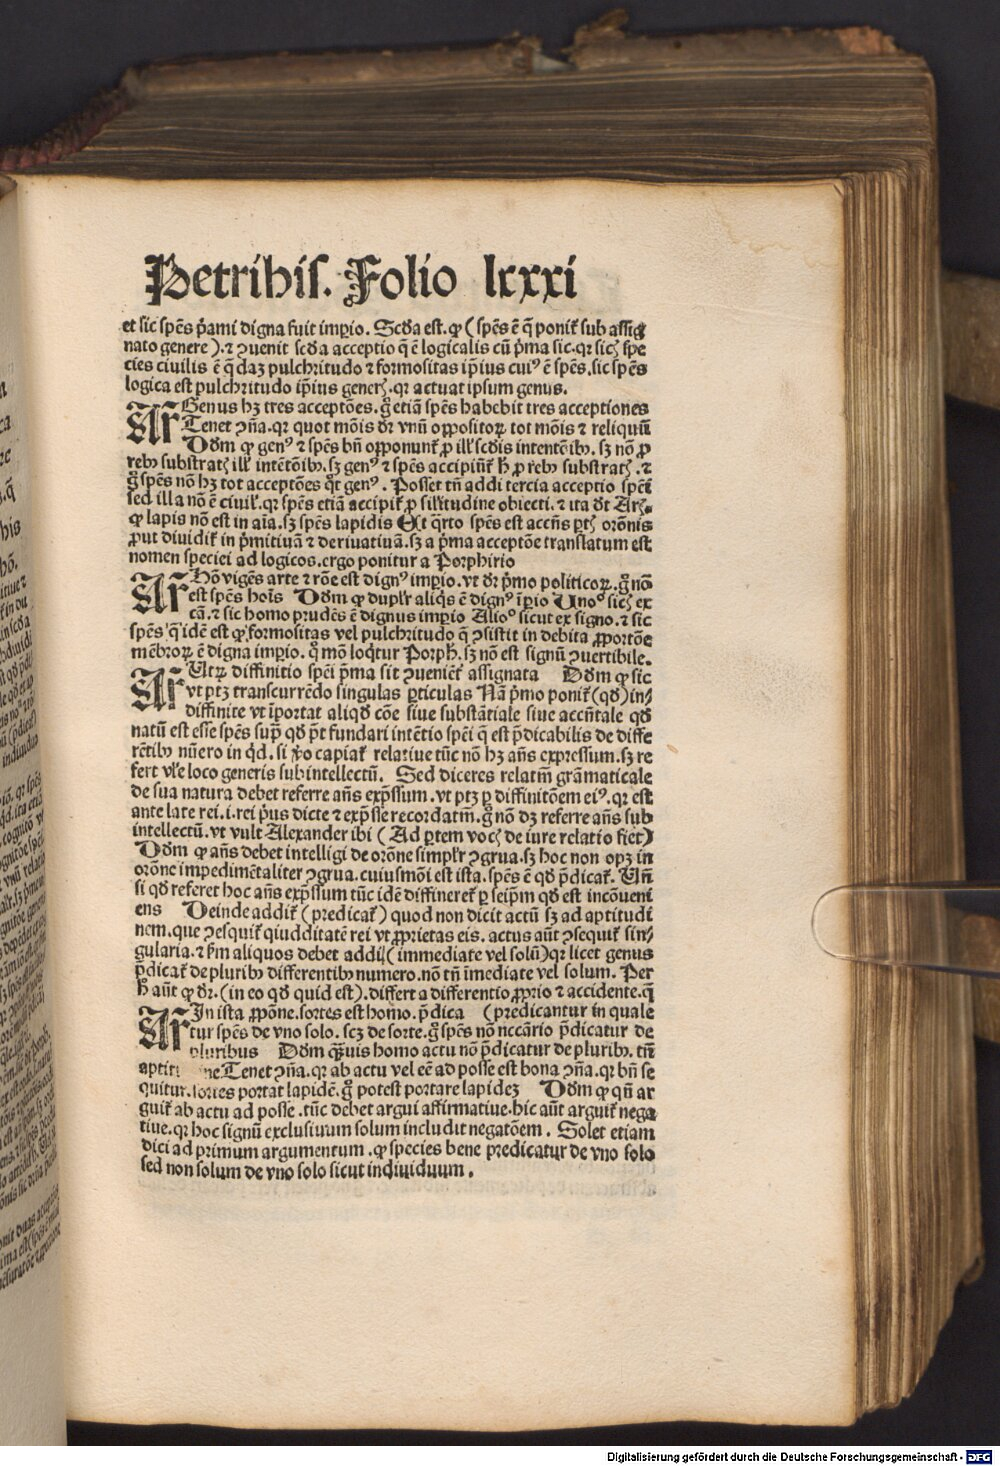 Petrihis. Folio lxxxi
et sic spēs p̄ami digna fuit imꝑio. Scd̄a est. ꝙ (spēs ē q̄ poniť sub assig
nato genere). ⁊ ꝯuenit scd̄a acceptio q̄ ē logicalis cū p̄ma sic. qꝛ sicꝭ spe
cies ciuilis ē q̄daꝫ pulchritudo ⁊ formositas ip̄ius cuiꝰ ē spēs. sic spēs
logica est pulchritudo ip̄ius generꝭ. qꝛ actuat ipsum genus.
Ar̄ Genus hꝫ tres acceptōes. g̊ etiā spēs habebit tres acceptiones
Tenet ꝯn̄a. qꝛ quot mōis dr̄ vnū oppositoꝝ tot mōis ⁊ reliquū
Dōm ꝙ genꝰ ⁊ spēs bn̄ opponunť ꝓ illꝭ scd̄is intentōibꝰ. sꝫ nō ꝓ
rebꝰ substratꝭ illꝭ intētōibꝰ. sꝫ genꝰ ⁊ spēs accipiūť h̄ ꝓ rebꝰ substratꝭ. ⁊
g̊ spēs nō hꝫ tot acceptōes q̊t genꝰ. Posset tn̄ addi tercia acceptio spēi
sed illa nō ē ciuilꝭ. qꝛ spēs etiā accipiť ꝓ sil'itudine obiecti. ⁊ ita dt̄ Arꝭ.
ꝙ lapis nō est in aīa. sꝫ spēs lapidis Et q̄rto spēs est accn̄s ꝑtꝭ orōnis
ꝓut diuidiť in p̄mitiuā ⁊ deriuatiuā. sꝫ a p̄ma acceptōe translatum est
nomen speciei ad logicos. ergo ponitur a Porphirio
Ar̄ Hō vigēs arte ⁊ rōe est dignꝰ imꝑio. vt dr̄ p̄mo politicoꝝ. g̊ nō
est spēs hoīs Dōm ꝙ duplr̄ aliq̄s ē dignꝰ īꝑio Unoº sicꝭ ex
cā. ⁊ sic homo prudēs ē dignus imꝑio Alioº sicut ex signo. ⁊ sic
spēs q̄ idē est ꝙ formositas vel pulchritudo q̄ ꝯsistit in debita ꝓportōe
mēbroꝝ ē digna imꝑio. q̊ mō loq̄tur Porph. sꝫ nō est signū ꝯuertibile.
Ar̄ Utꝝ diffinitio spēi p̄ma sit ꝯueniēť assignata Dōm ꝙ sic
vt ptꝫ transcurrēdo singulas ꝑticulas Nā p̄mo poniť (qd̄) in⸗
diffinite vt īportat aliqd̄ cōe siue substātiale siue accn̄tale qd̄
natū est esse spēs supꝭ qd̄ pt̄ fundari intētio spēi q̄ est p̄dicabilis de diffe
rētibꝰ nūero in q̇d. si v̊o capiať relatiue tūc nō hꝫ an̄s expressum. sꝫ re
fert vl'e loco generis subintellectū. Sed diceres relatm̄ grāmaticale
de sua natura debet referre an̄s exp̄ssum. vt ptꝫ ꝑ diffinitōem eiꝰ. qꝛ est
ante late rei. i. rei p̄us dicte ⁊ exp̄sse recordatm̄. g̊ nō dꝫ referre an̄s sub
intellectū. vt vult Alexander ibi (Ad ꝑtem vocꝭ de iure relatio fiet)
Dōm ꝙ an̄s debet intelligi de orōne simplr̄ ꝯgrua. sꝫ hoc non opꝫ in
orōne impedimētaliter ꝯgrua. cuiusmōi est ista. spēs ē qd̄ p̄dicať. Un̄
si qd̄ referet hoc an̄s exp̄ssum tūc idē diffinereť ꝑ seip̄m qd̄ est incōueni
ens Deinde addiť (predicať) quod non dicit actū sꝫ ad aptitudi
nem. que ꝯsequiť qiudditatē rei vt ꝓprietas eis. actus aūt ꝯsequiť sin⸗
gularia. ⁊ ẜm aliquos debet addi (immediate vel solū) qꝛ licet genus
p̄dicať de pluribꝰ differentibꝰ numero. nō tn̄ īmediate vel solum. Per
h̄ aūt ꝙ dr̄. (in eo qd̄ quid est). differt a differentio ꝓprio ⁊ accidente. q̄
Ar̄ In ista ꝓpōne. sortes est homo. p̄dica (predicantur in quale
tur spēs de vno solo. scꝫ de sorte. g̊ spēs nō nccārio p̄dicatur de
pluribus Dōm qꝙuis homo actu nō p̄dicatur de pluribꝰ. tn̄
aptit ne. Tenet ꝯn̄a. qꝛ ab actu vel eē ad posse est bona ꝯn̄a. qꝛ bn̄ se
quitur. sortes portat lapidē. g̊ potest portare lapideꝫ Dōm ꝙ qn̄ ar
guiť ab actu ad posse. tūc debet argui affirmatiue. hic aūt arguiť nega
tiue. qꝛ hoc signū exclusiuum solum includit negatōem. Solet etiam
dici ad primum argumentum. ꝙ species bene predicatur de vno solo
sed non solum de vno solo sicut indiuiduum.
Digitalisierung gefördert durch die Deutsche Forschungsgemeinschaft - DFG